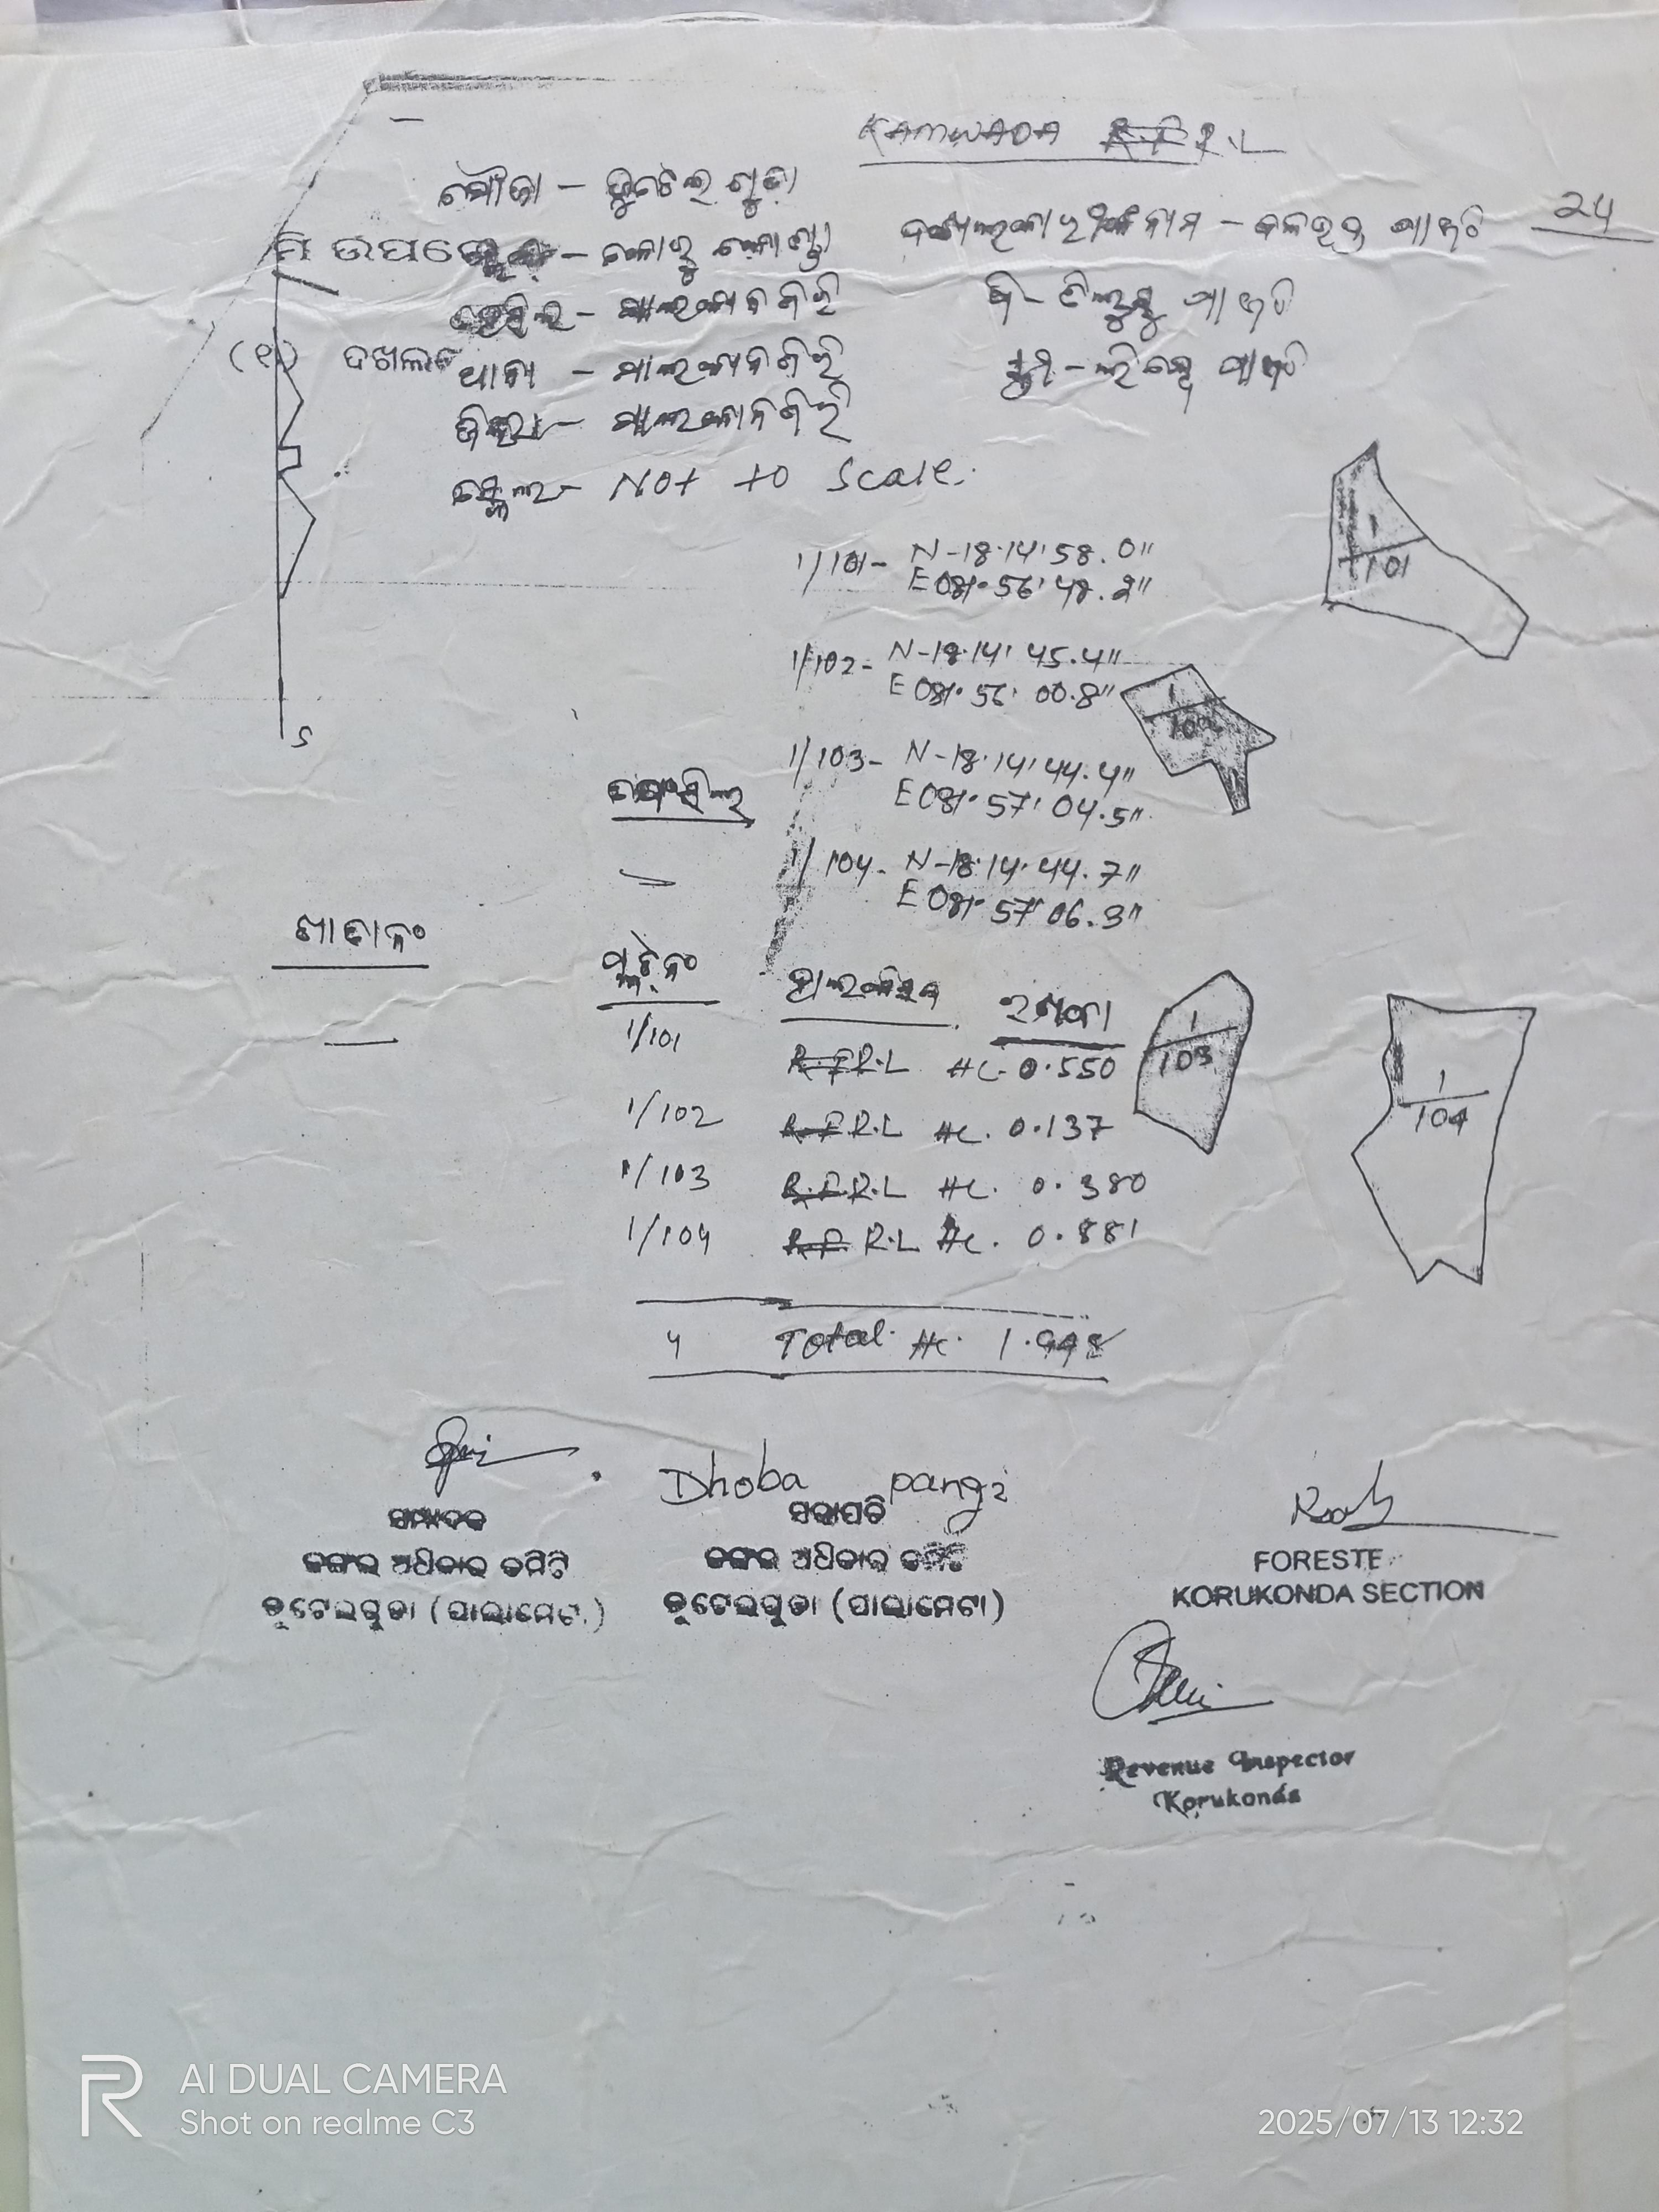 KAMWADA R.F R.L
ମୌଜା - ଭୁଟେଇଗୁଡ଼ା
ଦଖଲକାରୀଙ୍କ ନାମ - ବଳଭଦ୍ର ପାଙ୍ଗି 24
ମି ଉପରେ - କୋରୁକୋଣ୍ଡା
ତହସିଲ - ମାଲକାନଗିରି
(୧) ଦଖଲ
ଥାନା - ମାଲକାନଗିରି
ଜିଲ୍ଲା - ମାଲକାନଗିରି
ସ୍କେଲ - Not to Scale.
1/101
1/101- N-18°14'58.0"
E 081°56'48.2"
1/102- N-18°14'45.4"
E 081°56'00.8"
1/102
S
1/103- N-18°14'44.4"
E 081°57'04.5"
ତଫସିଲ
1/104- N-18°14'44.7"
E 081°57'06.3"
ଖାତା ନଂ ପ୍ଲଟ ନଂ ହାଲକିସମ ରକବା
1/103
1/104
— 1/101 R.F R.L HC. 0.550
1/102 R.F R.L HC. 0.137
1/103 R.F. R.L HC. 0.380
1/104 R.F. R.L HC. 0.881
4 Total HC. 1.948
Dhoba pangi
ସମ୍ପାଦକ ସଭାପତି
ଜଙ୍ଗଲ ଅଧିକାର କମିଟି ଜଙ୍ଗଲ ଅଧିକାର କମିଟି
ଭୁଟେଇଗୁଡା (ପାଲାମେଟା) ଭୁଟେଇଗୁଡା (ପାଲାମେଟା)
FORESTE
KORUKONDA SECTION
Revenue Inspector
Korukonda
AI DUAL CAMERA
Shot on realme C3
2025/07/13 12:32